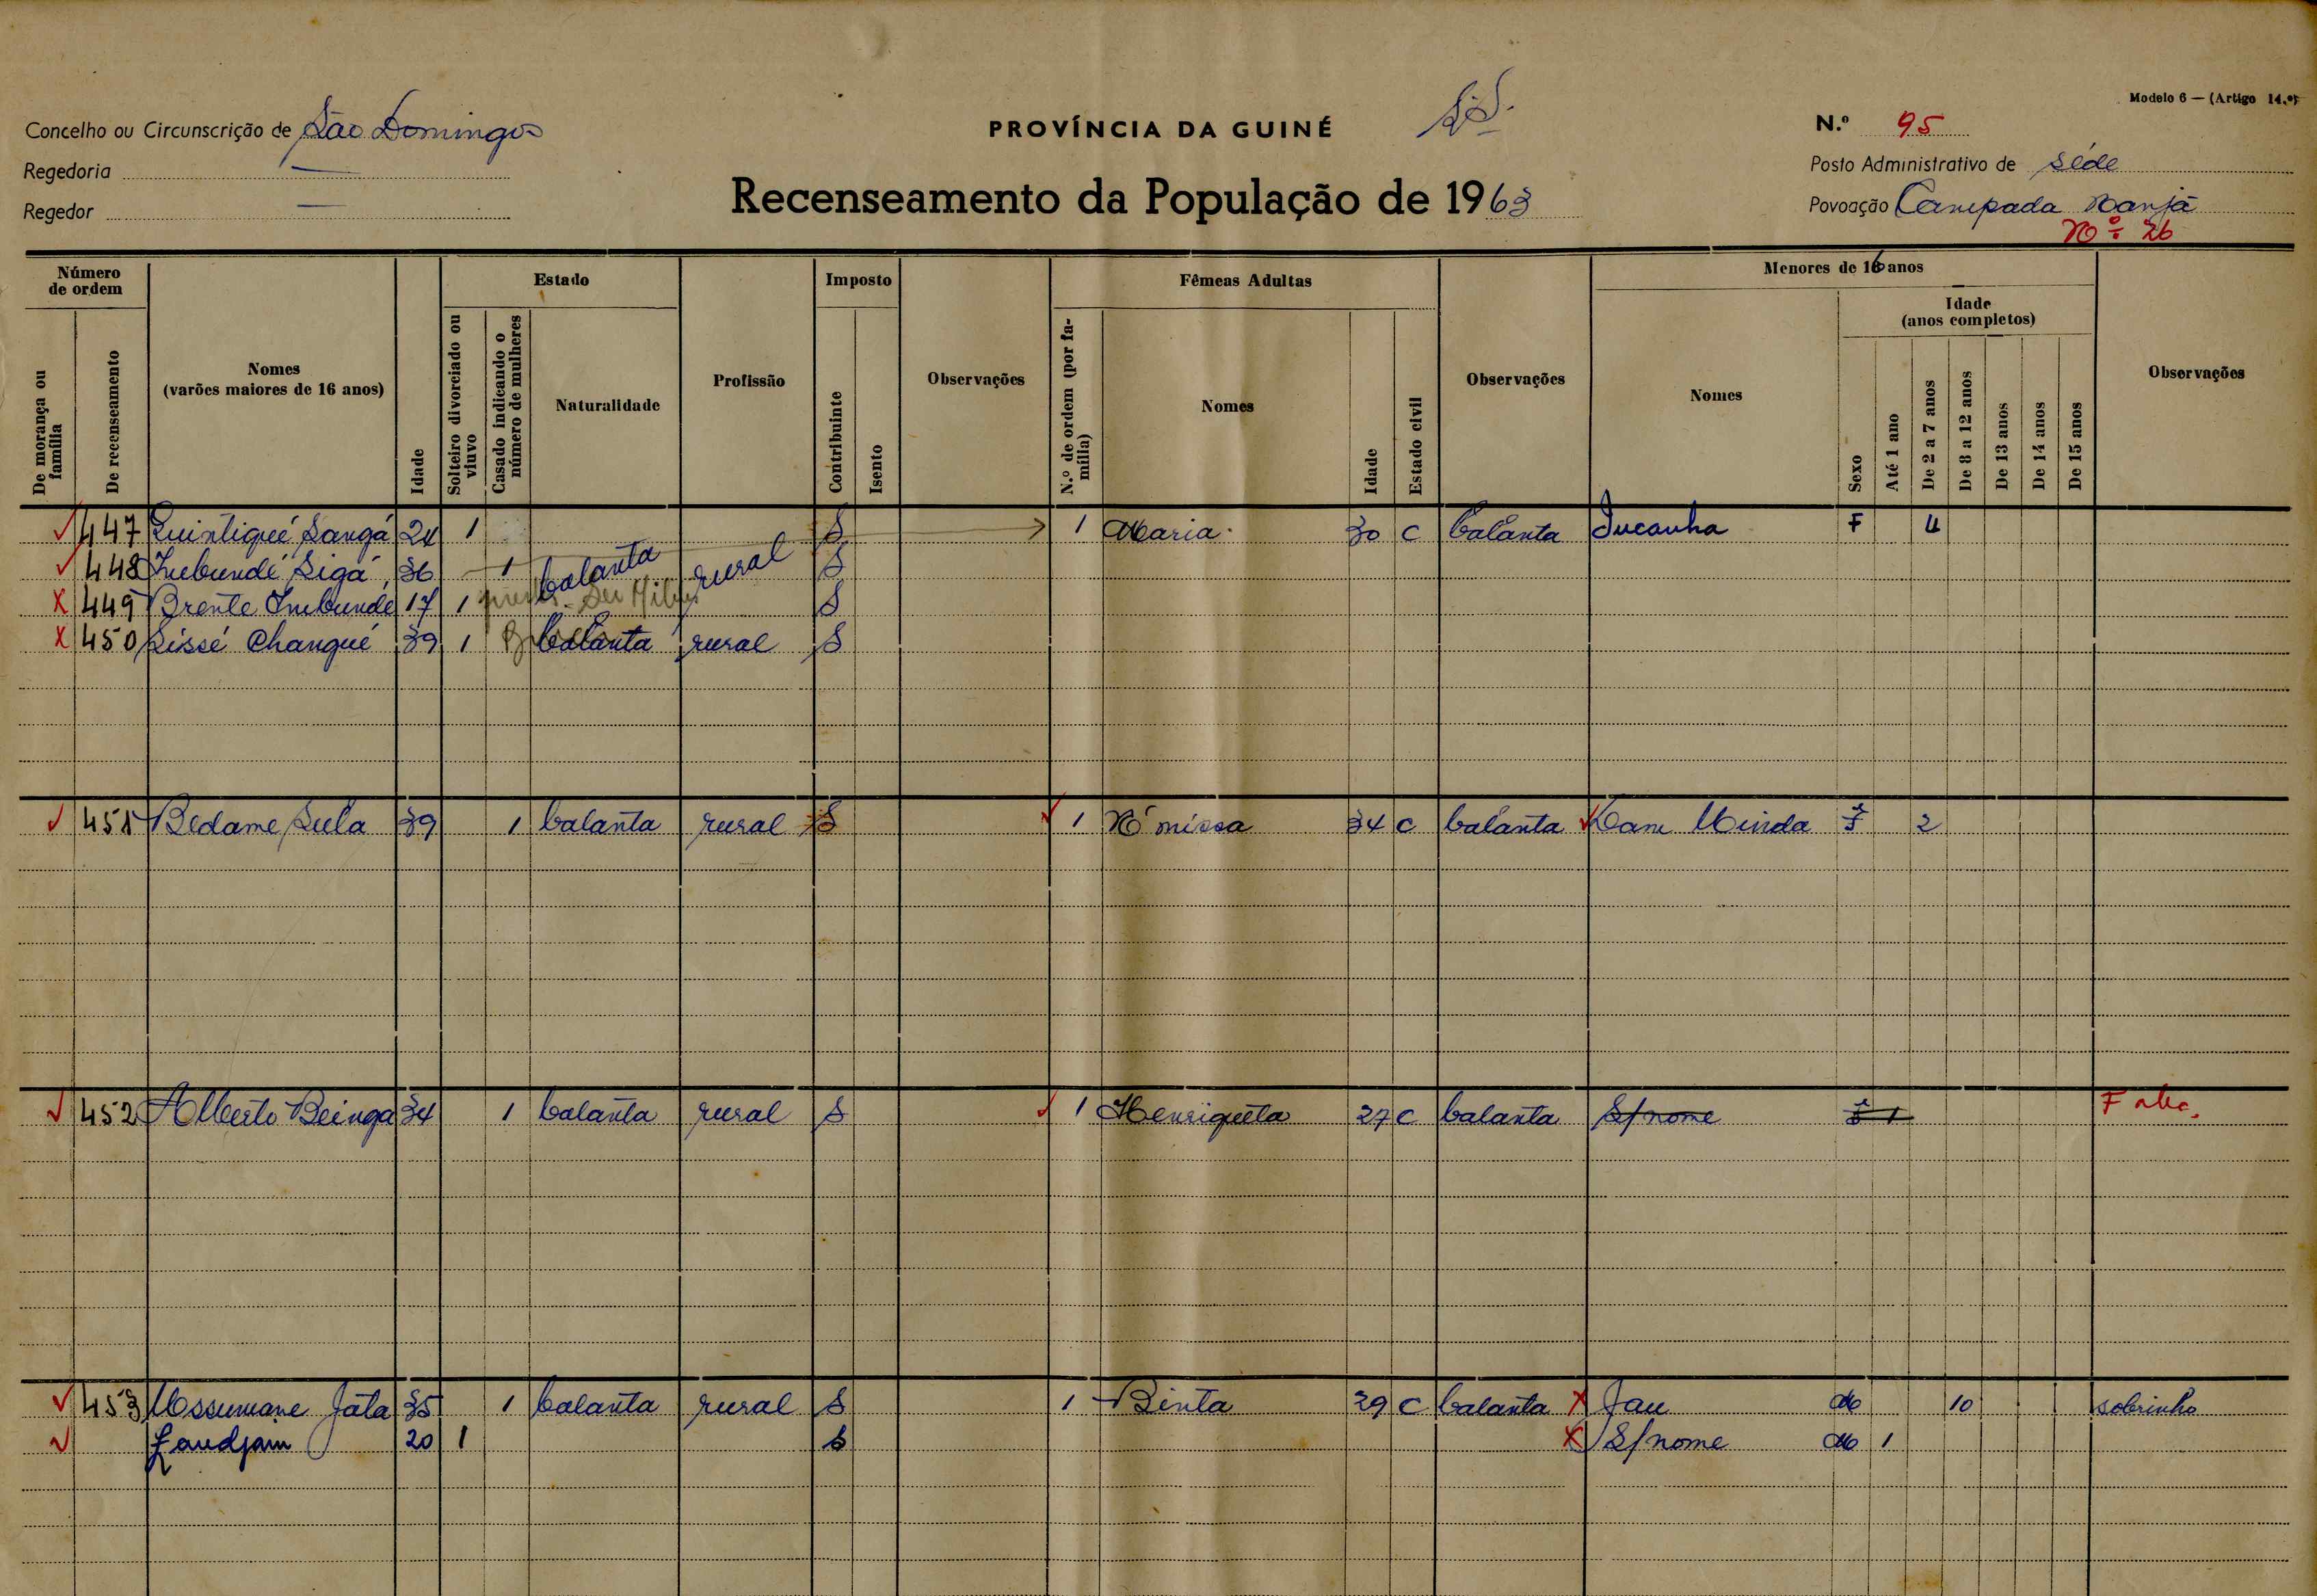 Modelo 6 — (Artigo 14.º)
Concelho ou Circunscrição de São Domingos
PROVÍNCIA DA GUINÉ
N.º 95
Regedoria —
Posto Administrativo de Séde
Regedor —
Recenseamento da População de 1963
Povoação Campada Nanjá
Nº 26
Número de ordem
De morança ou família
De recenseamento
Nomes
(varões maiores de 16 anos)
Idade
Estado
Solteiro divorciado ou viuvo
Casado indicando o número de mulheres
Naturalidade
Profissão
Imposto
Contribuinte
Isento
Observações
Fêmeas Adultas
N.º de ordem (por família)
Nomes
Idade
Estado civil
Observações
Menores de 16 anos
Nomes
Sexo
Idade
(anos completos)
Até 1 ano
De 2 a 7 anos
De 8 a 12 anos
De 13 anos
De 14 anos
De 15 anos
Observações
447 Quintiqué Sangá 24 1 S 1 Maria 30 C balanta Jucanha F 4
448 Imbundé Sigá 36 1 balanta rural S
449 Brente Imbunde 17 1 S
450 Sissé Changué 39 1 balanta rural S
451 Bedame Sula 39 1 balanta rural S 1 N'missa 34 C balanta 2
452 Alberto Beinga 34 1 balanta rural S 1 Henriqueta 27 C balanta S/nome 1
453 Ussumane Jata 35 1 balanta rural S 1 Binta 29 C balanta Jau 10 sobrinho
Landjam 20 1 S S/nome 1